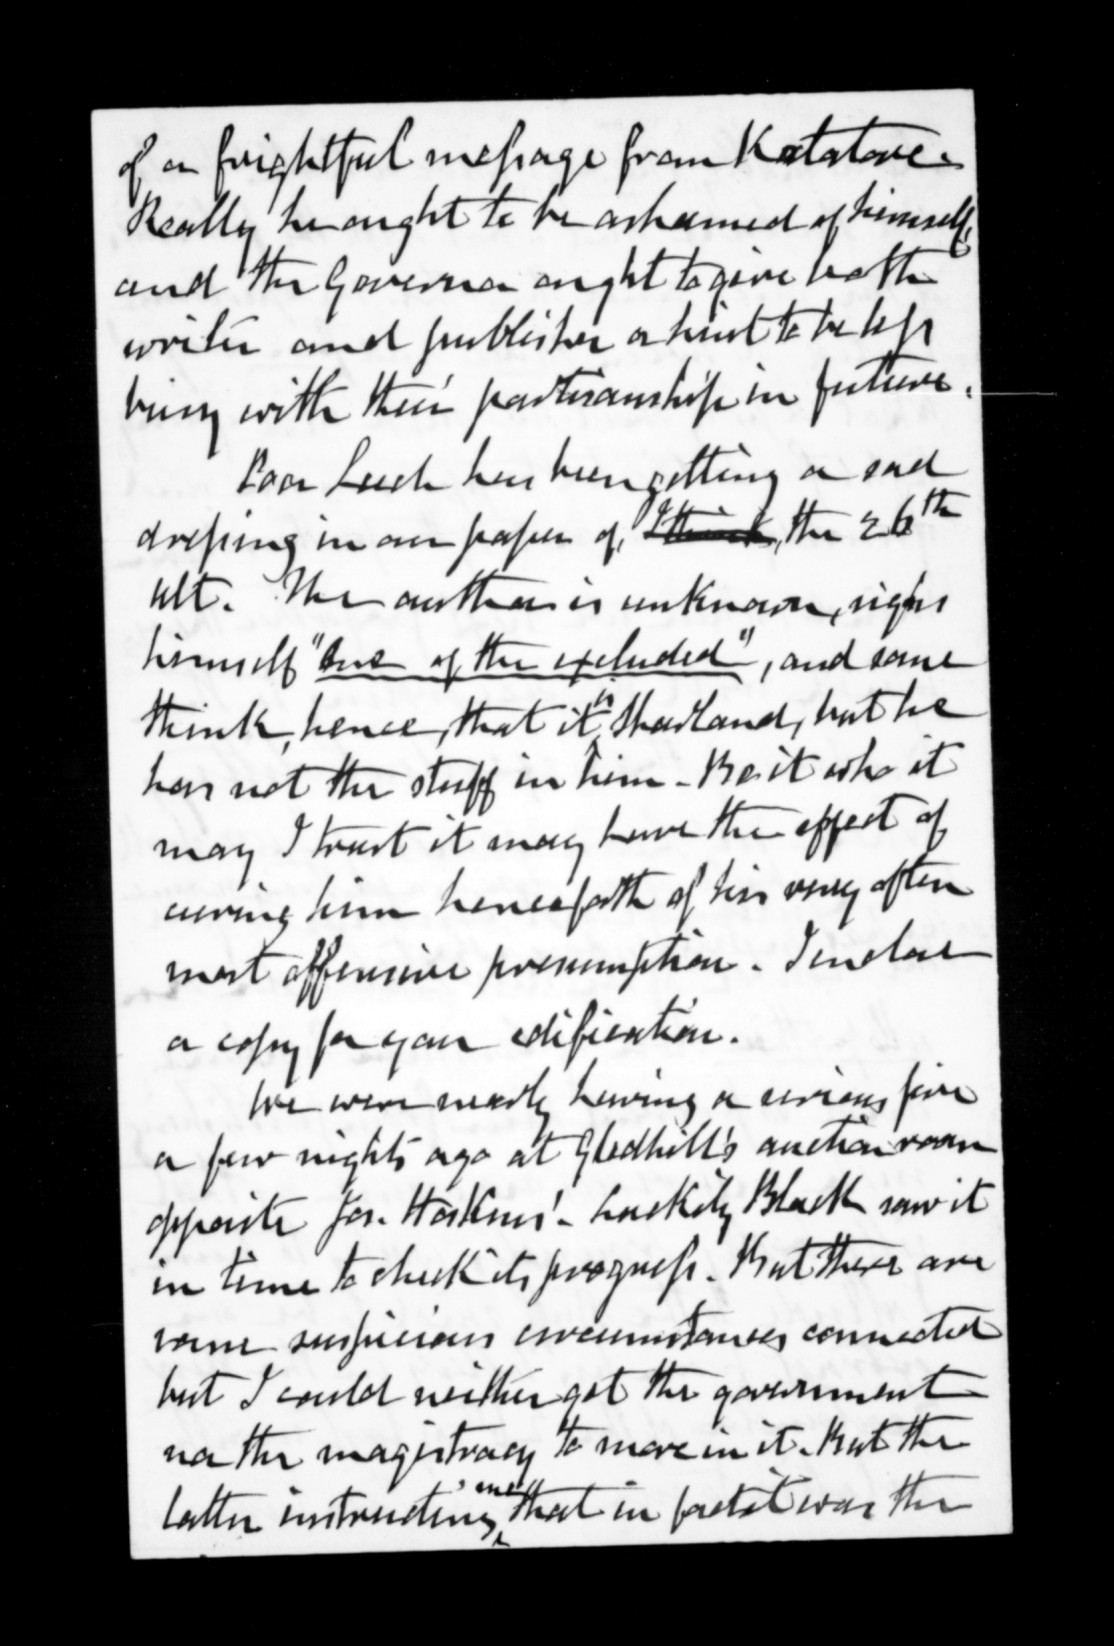 of a frightful message from Katatore.
Really he ought to be ashamed of himself,
and the Governor ought to give both
writer and publisher a hint to be less
busy with their partisanship in future.
Poor Leech has been getting a sad
dressing in our paper of, I think, the 26th
ult. The author is unknown, signs
himself "One of the excluded", and some
think, hence, that it is Sharland, but he
has not the stuff in him - Be it who it
may I trust it may have the effect of
curing him henceforth of his very often
most offensive presumption. I enclose
a copy for your edification.
We were nearly having a serious fire
a few nights ago at Gledhill's auction room
opposite Jos. Hoskins' - Luckily Black saw it
in time to check its progress. But there are
some suspicious circumstances connected
but I could neither get the government
nor the magistracy to move in it. But the
latter instructing me that in fact it was the